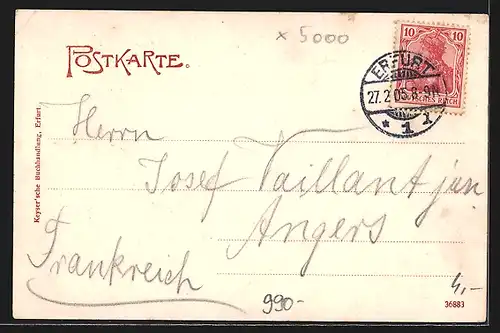 x 5000
POSTKARTE.
10 10
DEUTSCHES REICH
ERFURT
27.2.05.8-9N.
* 1 I
Herrn
Josef Vaillant jun
Angers
Frankreich
Keyser'sche Buchhandlung, Erfurt.
990-
4,-
36883